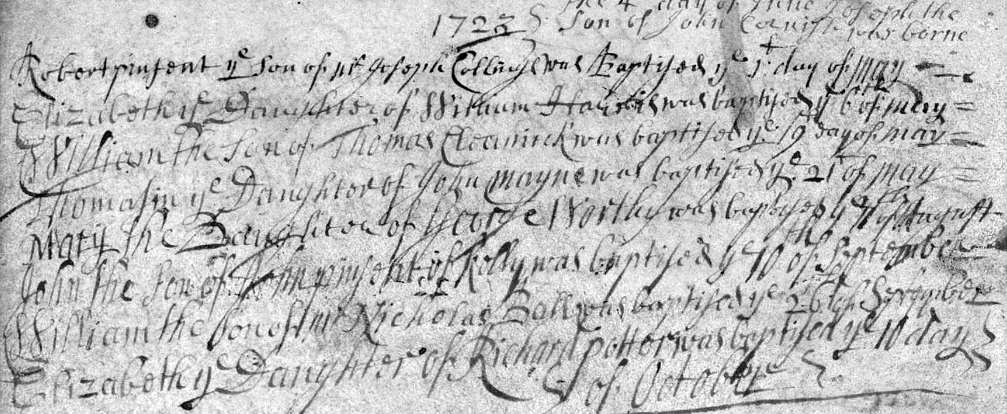 the 4 day of June Joseph the
1723 Son of John Cornish was borne
Robert pinsent ye Son of mr Joseph was Baptised ye 1t day of May
Elizabeth ye Daughter of William was baptised ye 6th of may
William the Son of Thomas was baptised ye 19 day of may
Thomasin ye Daughter of John mayne was baptised ye 21t of may
Mary the Daughter of George Worth was baptised ye August
John the Son of John pinsent of Kelly was baptised ye 10th of September
William the Son of mr Nicholas Ball was baptised ye 26th of September
Elizabeth ye Daughter of Richard potter was baptised ye 10 day
of October